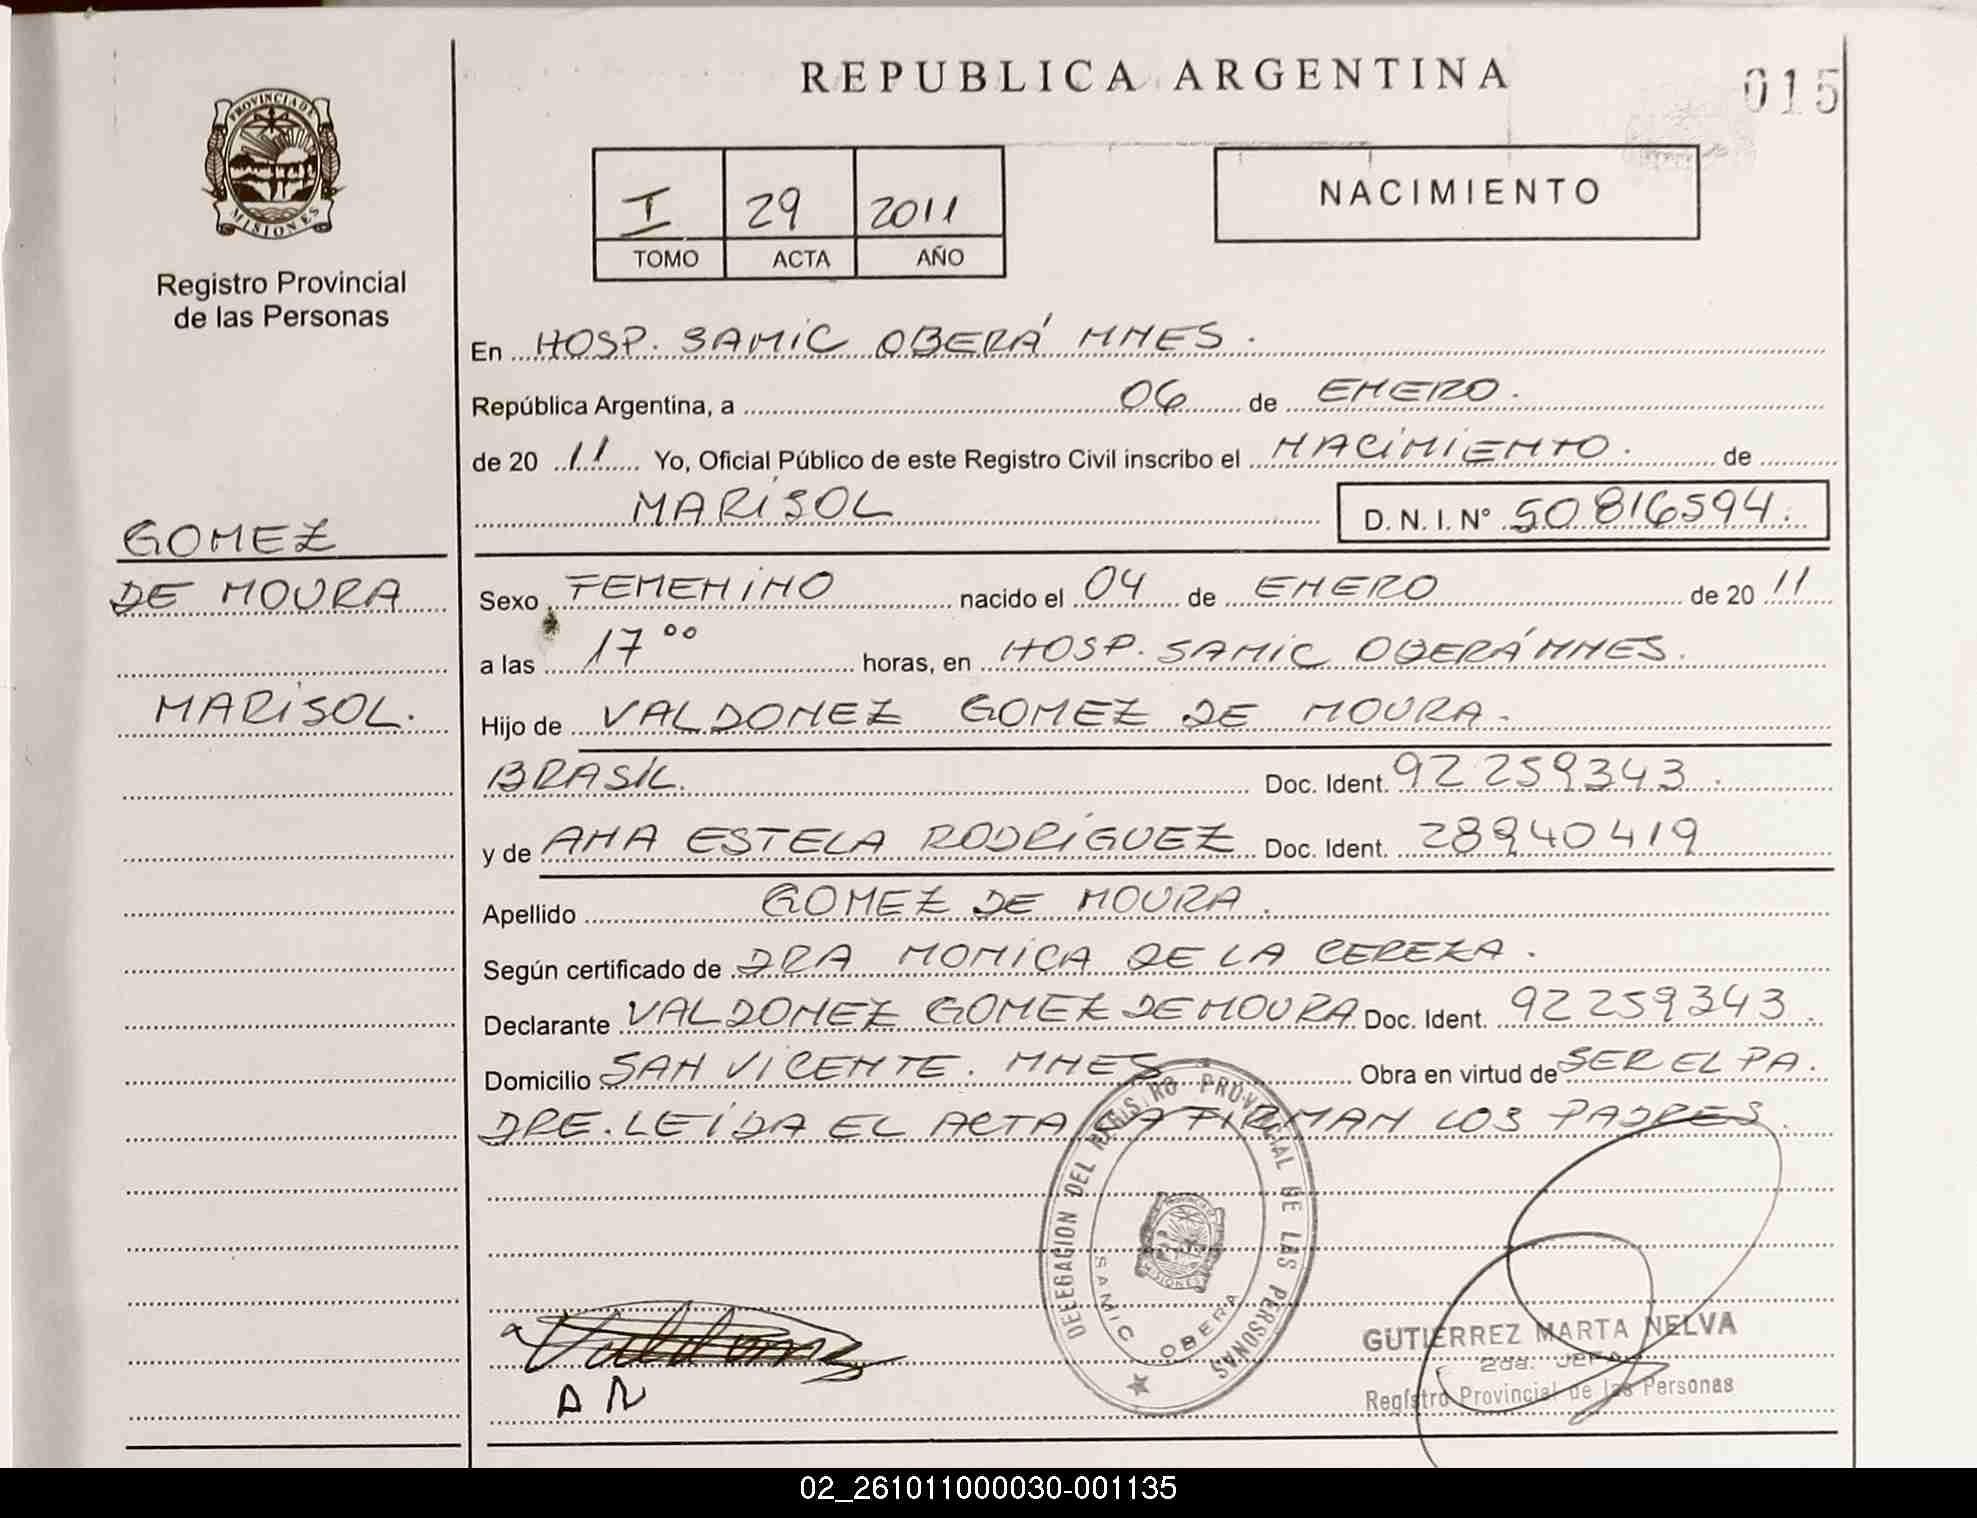 REPUBLICA ARGENTINA
015
PROVINCIA DE
MISIONES
Registro Provincial
de las Personas
I 29 2011
TOMO ACTA AÑO
NACIMIENTO
En HOSP. SAMIC OBERÁ MNES.
República Argentina, a 06 de ENERO.
de 20 11 Yo, Oficial Público de este Registro Civil inscribo el NACIMIENTO. de
MARISOL D. N. I. N° 50816594.
GOMEZ
DE MOURA
MARISOL.
Sexo FEMENINO nacido el 04 de ENERO de 20 11
a las 17 00 horas, en HOSP. SAMIC OBERÁ MNES.
Hijo de VALDONEZ GOMEZ DE MOURA.
BRASIL. Doc. Ident. 92259343.
y de ANA ESTELA RODRIGUEZ Doc. Ident. 28940419
Apellido GOMEZ DE MOURA.
Según certificado de DRA MONICA DE LA CEREZA.
Declarante VALDONEZ GOMEZ DE MOURA Doc. Ident. 92259343.
Domicilio SAN VICENTE. MNES Obra en virtud de SER EL PA.
DRE. LEIDA EL ACTA LA FIRMAN LOS PADRES.
DELEGACION DEL REGISTRO PROVINCIAL DE LAS PERSONAS
SAMIC OBERA
PROVINCIA DE
MISIONES
A N
GUTIERREZ MARTA NELVA
2da. JEFA
Registro Provincial de las Personas
02_261011000030-001135